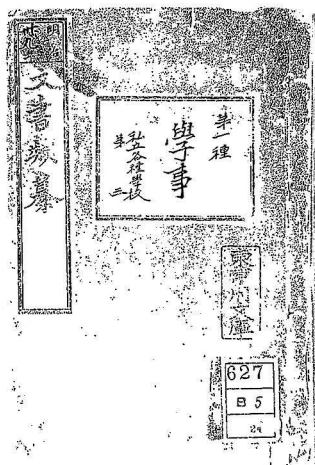 明
廿九年
文書類纂
第一種
學事
私立各種學校
第三
東京府文庫
627
B5
2a